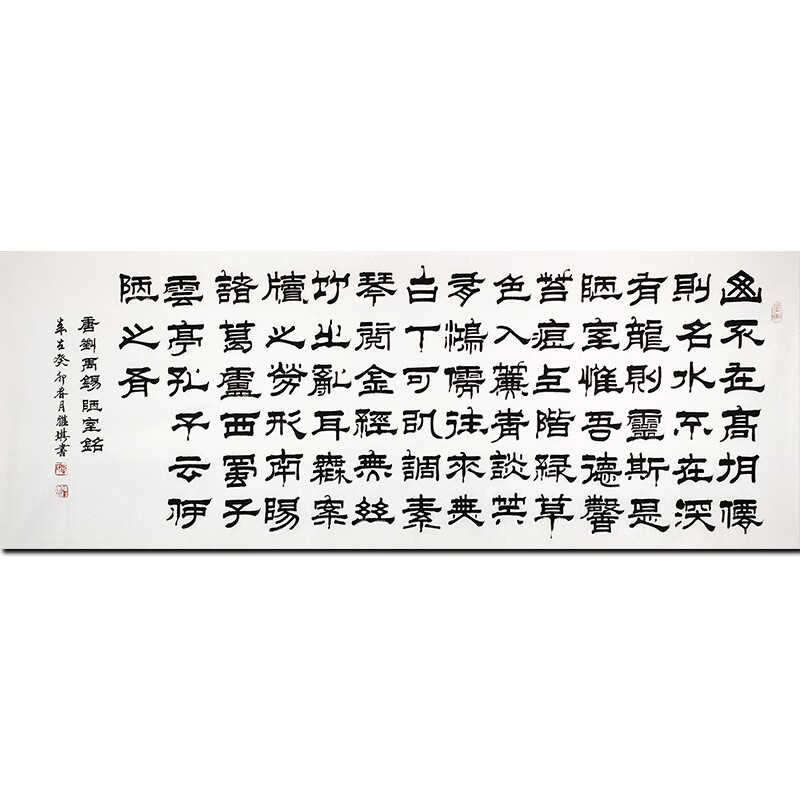 山不在高有僊
則名水不在深
有龍則靈斯是
陋室惟吾德馨
苔痕上階緑草
色入簾青談笑
有鴻儒往來無
白丁可以調素
琴閱金經無絲
竹之亂耳無案
牘之勞形南陽
諸葛廬西蜀子
雲亭孔子云何
陋之有
唐劉禹錫陋室銘
歲在癸卯春月琪書